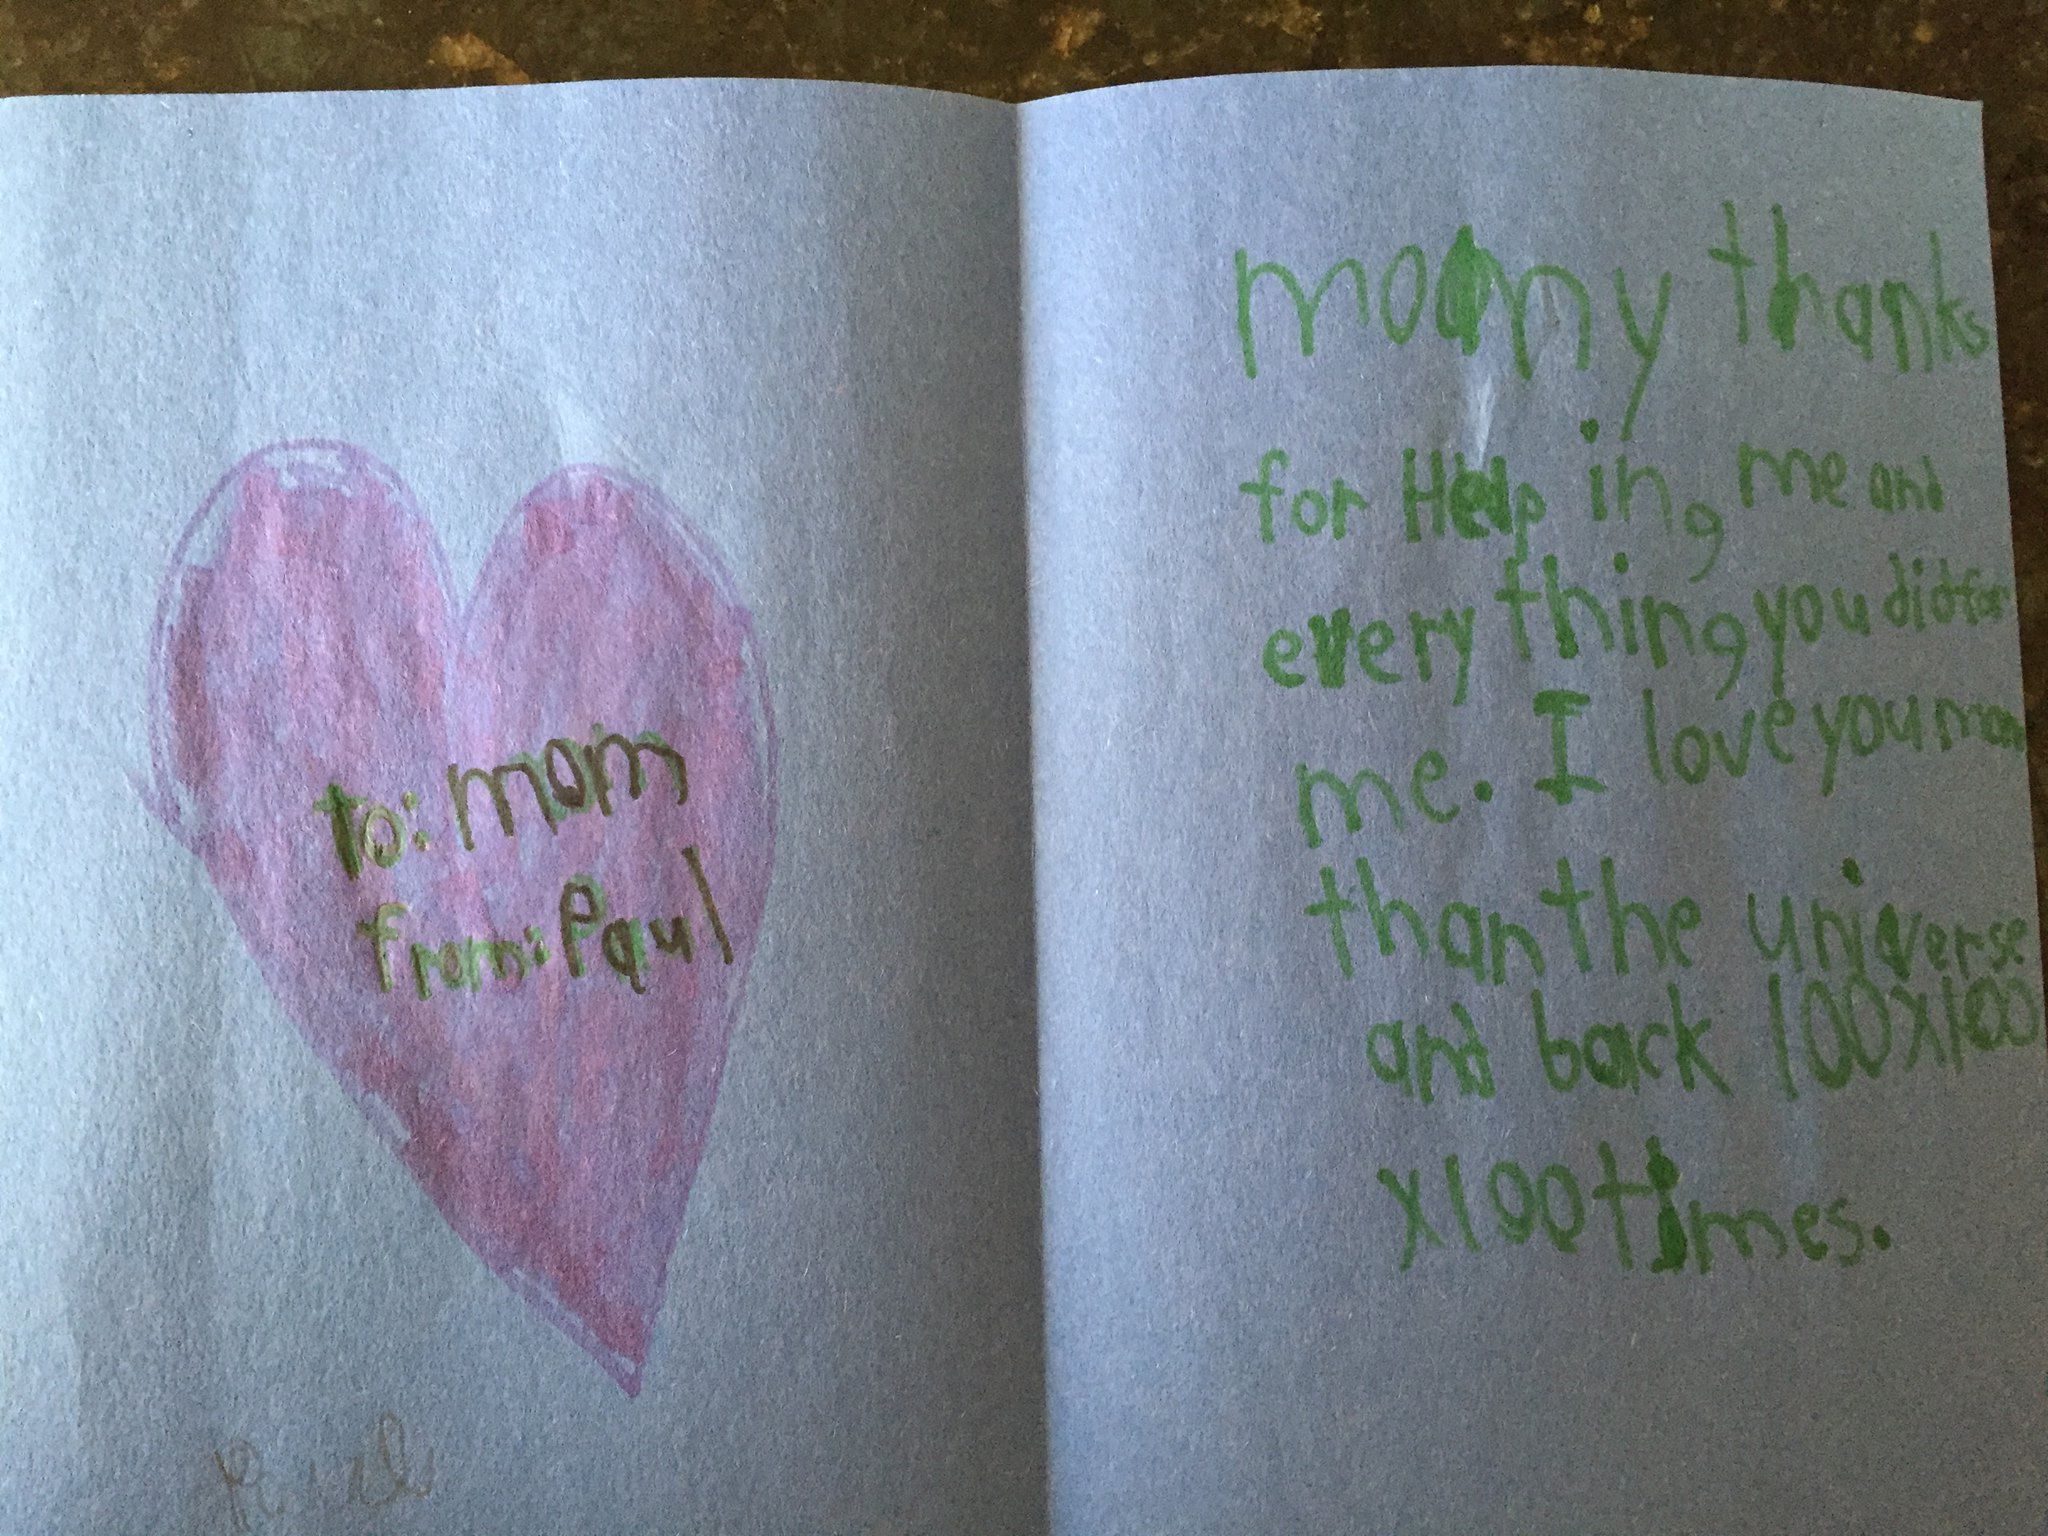 to: mom
from: Paul
momy thanks
for Help ing me and
every thing you did for
me. I love you more
than the universe
and back 100x100
x100 times.